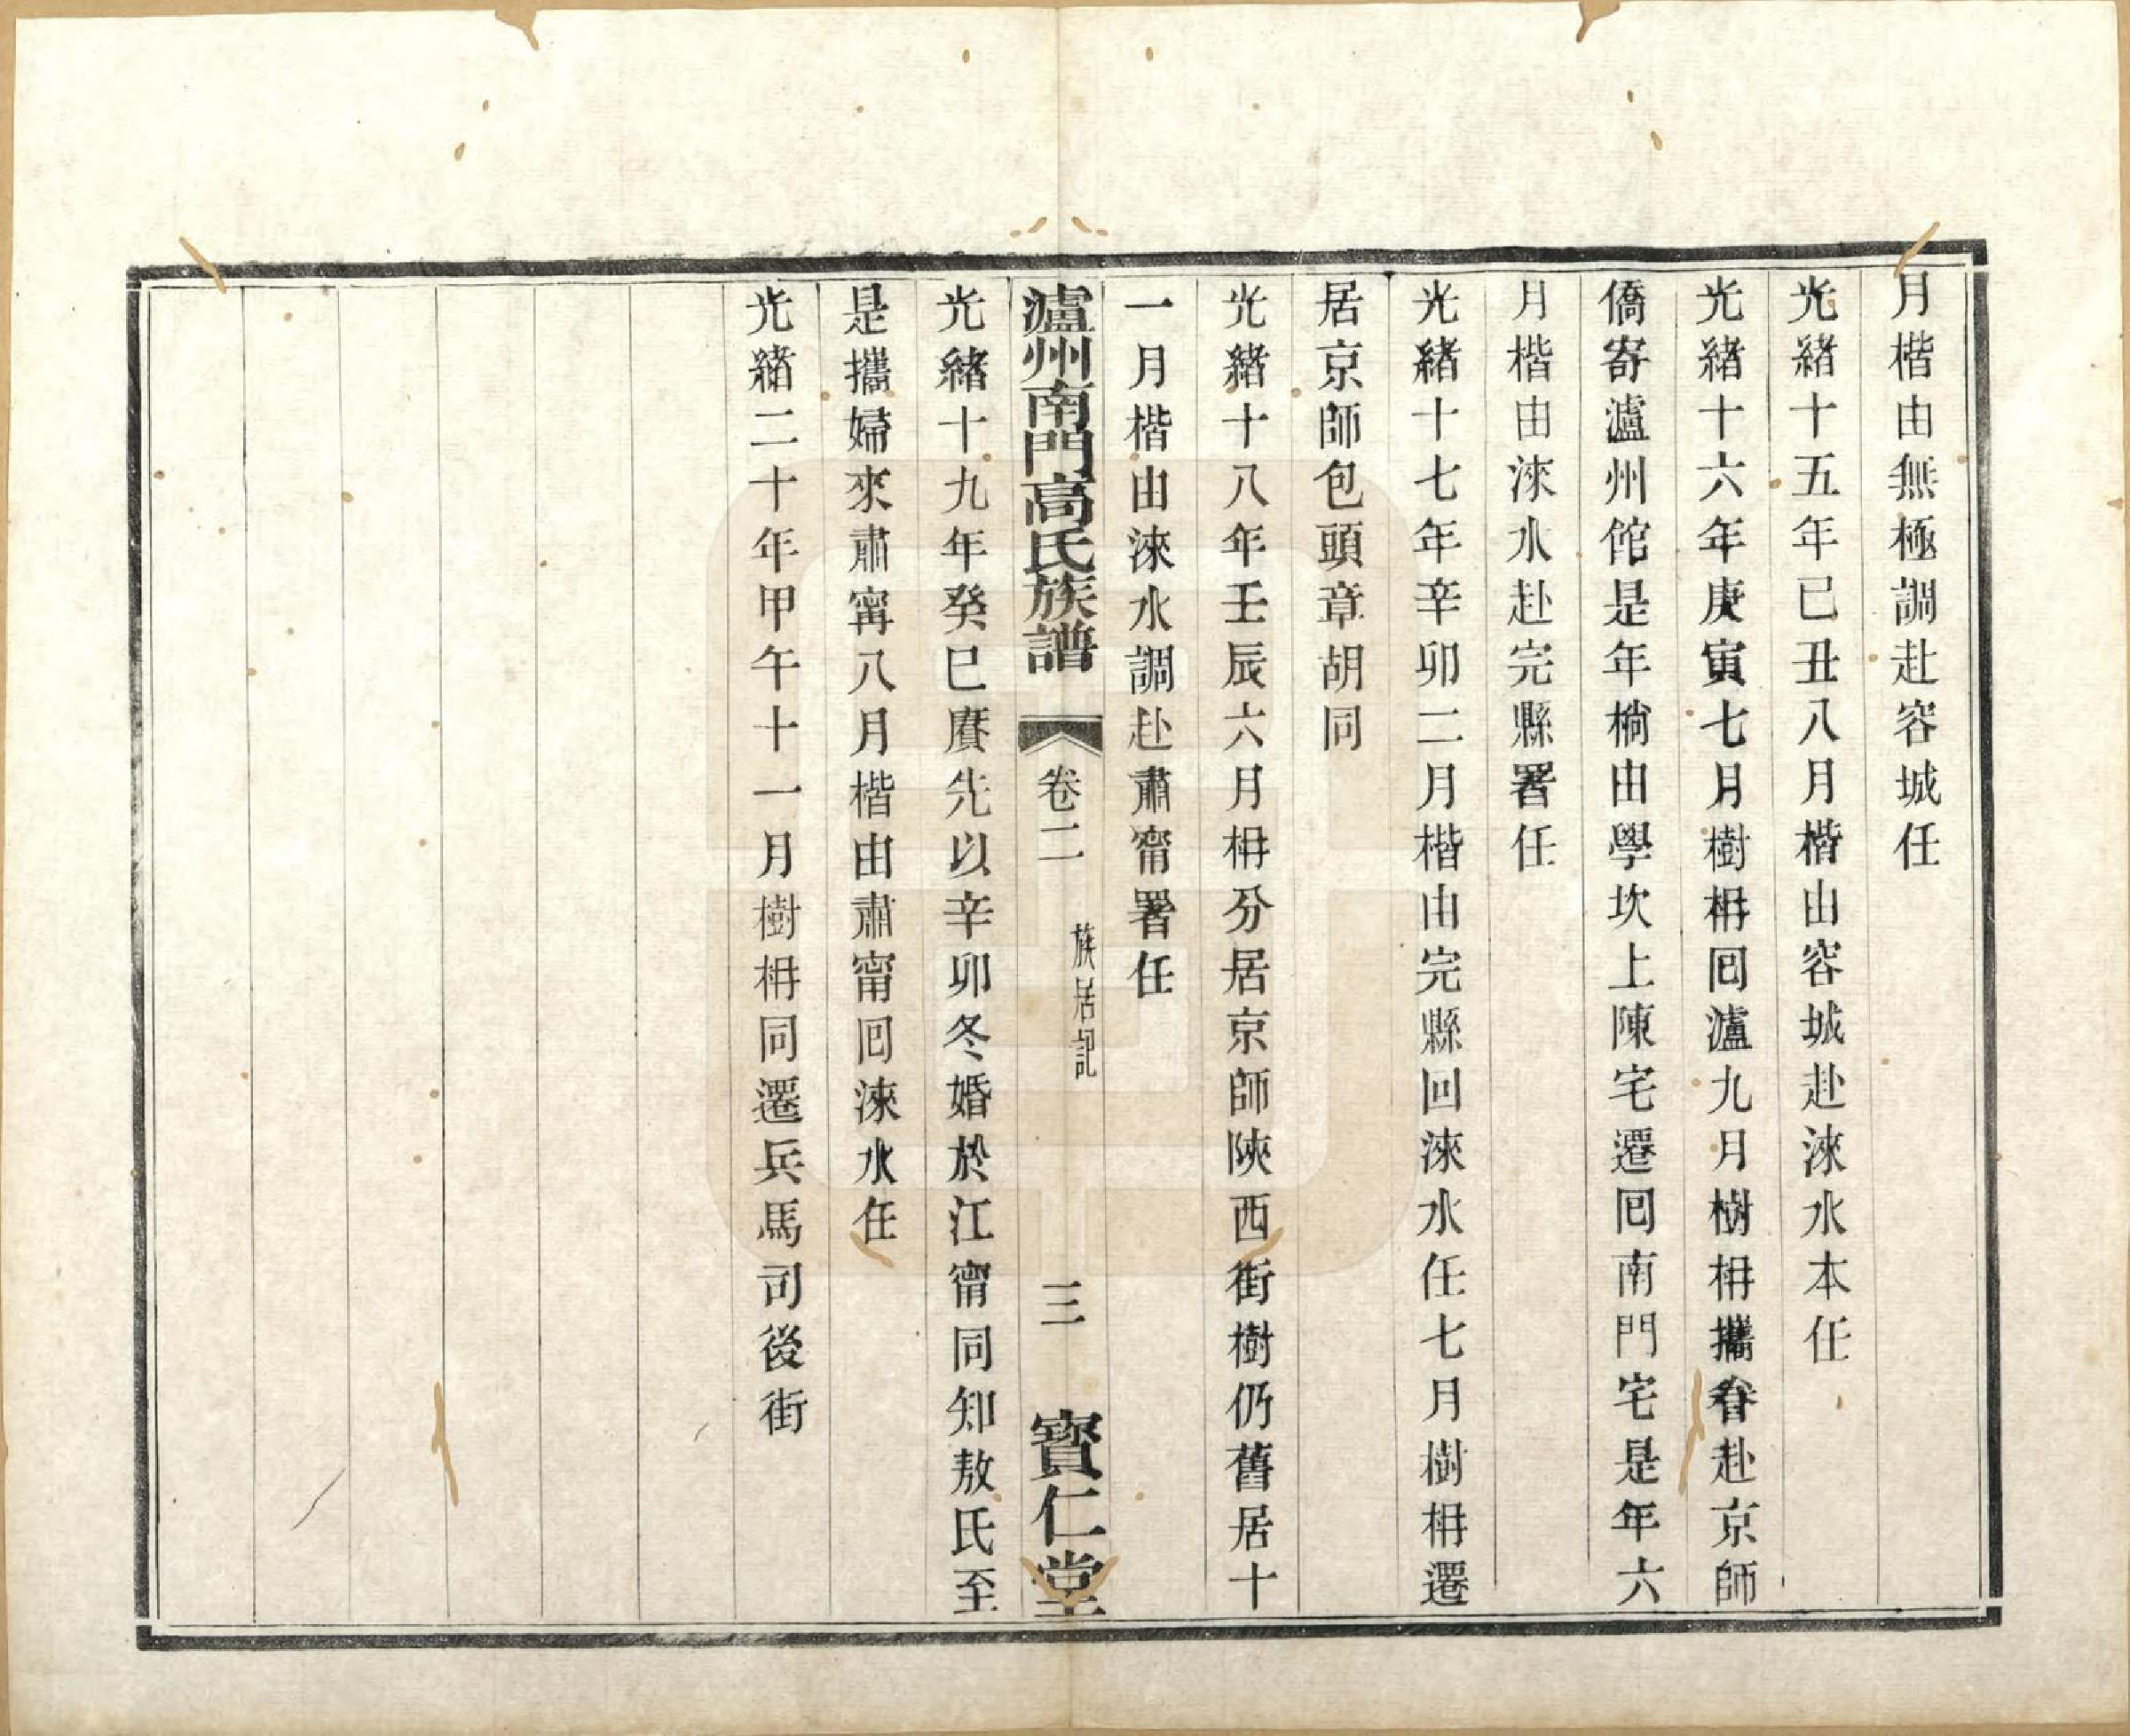 月楷由無極調赴容城任
光緒十五年己丑八月楷由容城赴淶水本任
光緒十六年庚寅七月樹枏囘瀘九月樹枏攜眷赴京師
僑寄瀘州館是年樹由學坎上陳宅遷囘南門宅是年六
月楷由淶水赴完縣署任
光緒十七年辛卯二月楷由完縣回淶水任七月樹枏遷
居京師包頭章胡同
光緒十八年壬辰六月枏分居京師陝西街樹仍舊居十
一月楷由淶水調赴肅甯署任
瀘州南門高氏族譜 卷二 族居記 三 寶仁堂
光緒十九年癸巳賡先以辛卯冬婚於江甯同知敖氏至
是攜婦來肅甯八月楷由肅甯囘淶水任
光緒二十年甲午十一月樹枏同遷兵馬司後街